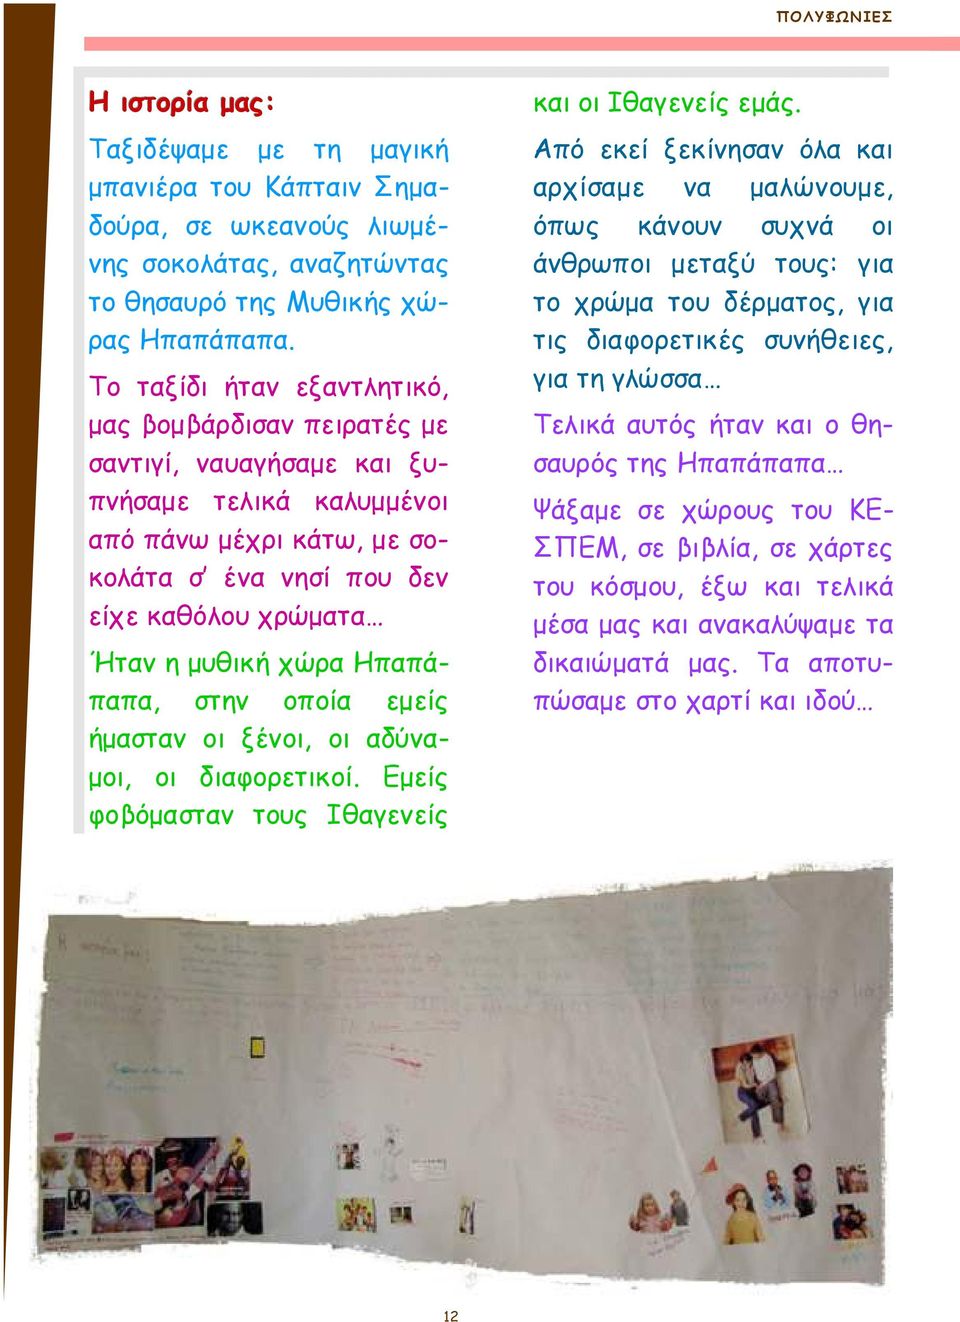 ΠΟΛΥΦΩΝΙΕΣ
Η ιστορία μας:
Ταξιδέψαμε με τη μαγική
μπανιέρα του Κάπταιν Σημα-
δούρα, σε ωκεανούς λιωμέ-
νης σοκολάτας, αναζητώντας
το θησαυρό της Μυθικής χώ-
ρας Ηπαπάπαπα.
Το ταξίδι ήταν εξαντλητικό,
μας βομβάρδισαν πειρατές με
σαντιγί, ναυαγήσαμε και ξυ-
πνήσαμε τελικά καλυμμένοι
από πάνω μέχρι κάτω, με σο-
κολάτα σ’ ένα νησί που δεν
είχε καθόλου χρώματα…
Ήταν η μυθική χώρα Ηπαπά-
παπα, στην οποία εμείς
ήμασταν οι ξένοι, οι αδύνα-
μοι, οι διαφορετικοί. Εμείς
φοβόμασταν τους Ιθαγενείς
και οι Ιθαγενείς εμάς.
Από εκεί ξεκίνησαν όλα και
αρχίσαμε να μαλώνουμε,
όπως κάνουν συχνά οι
άνθρωποι μεταξύ τους: για
το χρώμα του δέρματος, για
τις διαφορετικές συνήθειες,
για τη γλώσσα…
Τελικά αυτός ήταν και ο θη-
σαυρός της Ηπαπάπαπα…
Ψάξαμε σε χώρους του ΚΕ-
ΣΠΕΜ, σε βιβλία, σε χάρτες
του κόσμου, έξω και τελικά
μέσα μας και ανακαλύψαμε τα
δικαιώματά μας. Τα αποτυ-
πώσαμε στο χαρτί και ιδού…
Η ιστορία μας:
12